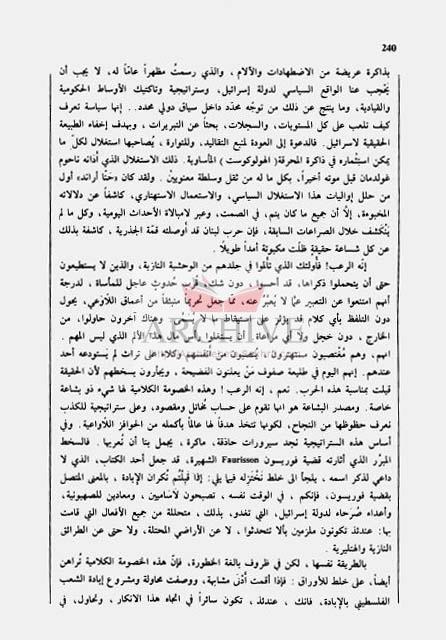 240
بذاكرة عريضة من الاضطهادات والآلام ، والذي رسمتُ مظهراً عامّا له، لا يجب أن
يحجب عنا الواقع السياسي لدولة إسرائيل، وستراتيجية وتاكتيك الأوساط الحكومية
والقيادية، وما ينتج عن ذلك من توجّه محدّد داخل سياق دولي محدد.. إنها سياسة تعرف
كيف تلعب على كل المستويات، والسجلات، بحثاً عن التبريرات ، وبهدف إخفاء الطبيعة
الحقيقية لاسرائيل. فالدعوة إلى العودة لمنبع التقاليد، وللتوراة ، يُصاحبها استغلال لكلّ ما
يمكن استثماره في ذاكرة المحرقة( الهولوكوست ) المأساوية. ذلك الاستغلال الذي أدانه ناحوم
غولدمان قبل موته أخيراً، بكل ما له من ثقل وسلطة معنويين . ولقد كان «حَنّا أراند» أول
من حلل إواليات هذا الاستغلال السياسي، والاستعمال الاستهتاري، كاشفاً عن دلالاته
المخبوءة، إلاّ أن جميع ما كان ينم، في الصمت، وعبر لامبالاة الأحداث اليومية، وكل ما لم
يتكشف خلال الصراعات السابقة، فإن حرب لبنان قد أوصلته قمّة الجذرية ، كاشفة بذلك
عن كل شساعة حقيقةٍ ظلّت مكبوتة أمداً طويلاً .
إنّه الرعب! فأولئك الذي تألموا في جلدهم من الوحشية النازية، والذين لا يستطيعون
حتى أن يتحملوا ذكراها، قد أحسوا، دون شك، قرب حُدوثٍ عاجل للمأساة ، لدرجة
أنهم امتنعوا عن التعبير عمّا لا يُعبّر عنه، ممّا جعل تحريماً منبثقاً من أعماق اللاوعي، يحول
دون التلفظ بأي كلام قد يؤثر على استيقاظ ما لا يُسمّى. وهناك آخرون حاولوا، من
الخارج ، دون خجل ولا أي مراعاة، أن يستغلوا رأس مال هذا الألم الذي ليس المهم .
انهم، وهم مُغتصبون مستهترون، ينصّبون من أنفسهم وكلاء على تراث لم يَستودعه أحد
عندهم. إنهم اليوم في طليعة صفوف مَنْ يعلنون الفضيحة ، ويجأرون بسخطهم لأن الحقيقة
قيلت بمناسبة هذه الحرب. نعم ، إنه الرعب ! وهذه الخصومة الكلامية لها شيء ذو بشاعة
خاصة . ومصدر البشاعة هو انها تقوم على حساب مُخاتل ومقصود، وعلى ستراتيجية للكذب
نعرف حظوظها من النجاح، لكونها تتخذ هدفاً لها عالماً بأكمله من الحوافز اللاواعية. وفي
أساس هذه الستراتيجية نجد سيرورات حاذقة، ماكرة ، يجمل بنا أن نُعريها . فالسخط
المبرَّر الذي أثارته قضية فوريسون Faurisson الشهيرة، قد جعل أحد الكتاب، الذي لا
داعي لذكر اسمه ، يلجأ الى خلط نَختزله فيما يلي: إذا قَبِلْتُم نُكران الإبادة ، بالمعنى المتصل
بقضية فوريسون، فإنكم ، في الوقت نفسه ، تصبحون لاساميين ، ومعادين للصهيونية،
وأعداء صُرحاء لدولة إسرائيل، التي تغدو، بذلك ، متحللة من جميع الأفعال التي قامت
بها: عندئذ تكونون ملزمين بألا تتحدثوا ، لا عن الأراضي المحتلة، ولا حتى عن الطرائق
النازية والهتليرية .
بالطريقة نفسها ، لكن في ظروف بالغة الخطورة، فإنّ هذه الخصومة الكلامية تُراهن
أيضاً، على خلط للأوراق : فإذا أقمت أدْنى مشابهة، ووصفت محاولة ومشروع إبادة الشعب
الفلسطيني بالإبادة، فانك ، عندئذ ، تكون سائراً في اتجاه هذا الانكار ، وتحاول، في
ARCHIVE